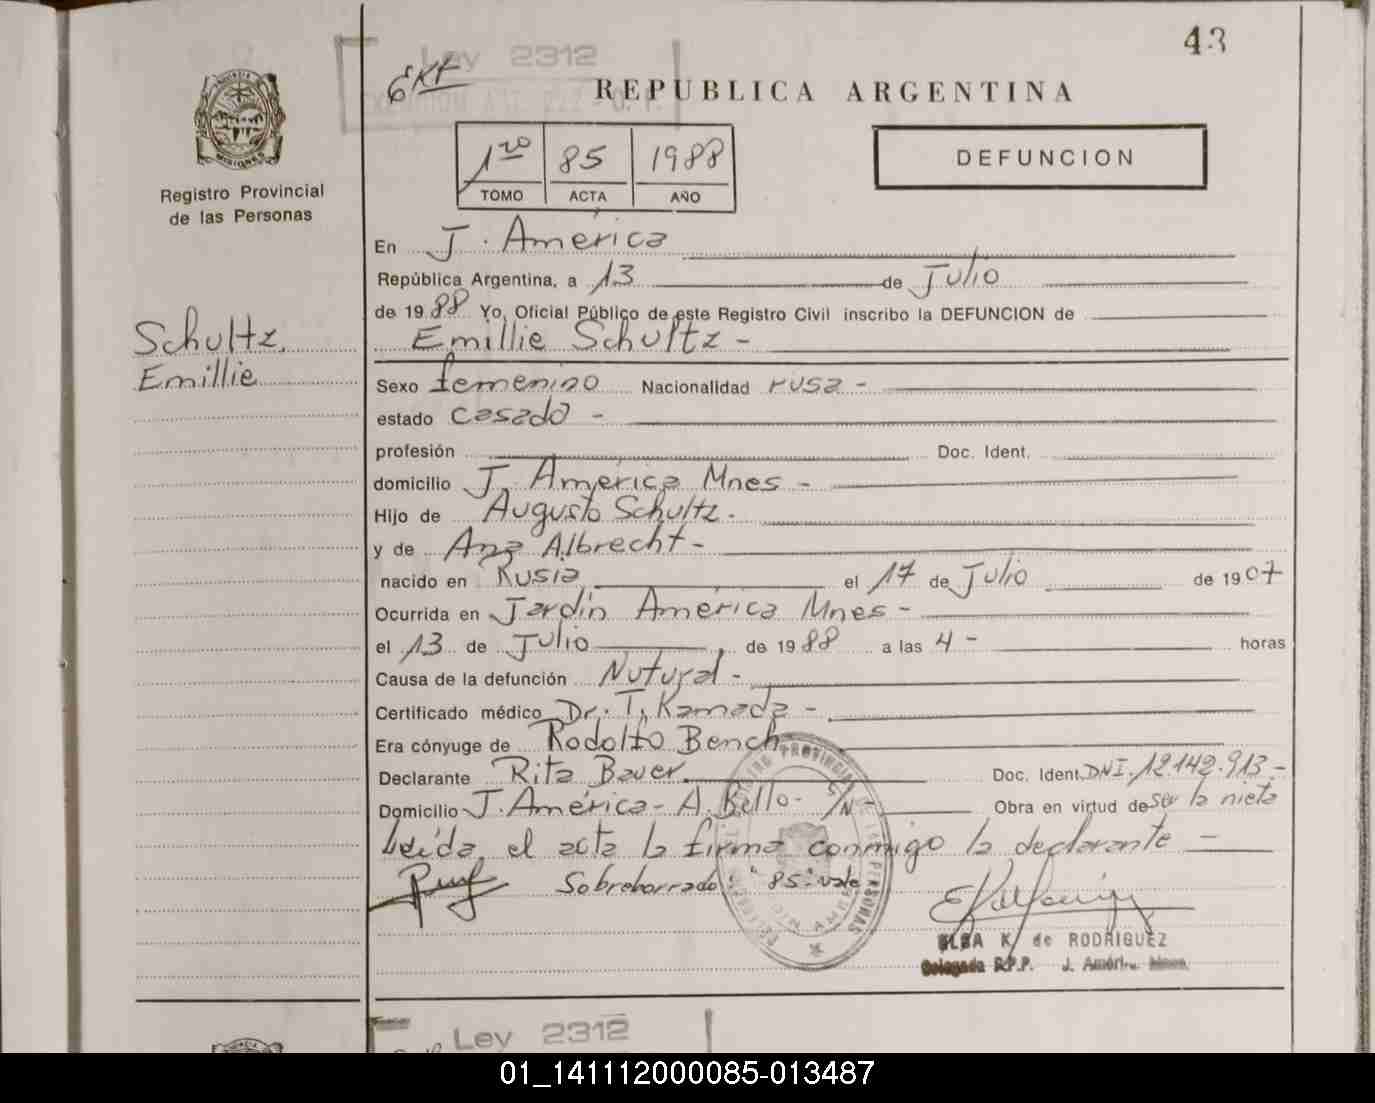 43
Ley 2312
Ext
REPUBLICA ARGENTINA
MISIONES
Registro Provincial
de las Personas
1ro 85 1988
TOMO ACTA AÑO
DEFUNCION
En J. América
República Argentina, a 13 de Julio
de 1988 Yo, Oficial Público de este Registro Civil inscribo la DEFUNCION de
Schultz,
Emillie
Emillie Schultz -
Sexo femenino Nacionalidad rusa -
estado casado -
profesión Doc. Ident.
domicilio J. América Mnes -
Hijo de Augusto Schultz -
y de Ana Albrecht -
nacido en Rusia el 17 de Julio de 1907
Ocurrida en Jardín América Mnes -
el 13 de Julio de 1988 a las 4 - horas
Causa de la defunción Natural -
Certificado médico Dr. T. Kamada -
Era cónyuge de Rodolfo Bench
Declarante Rita Bauer Doc. Ident. DNI. 12.142.913 -
Domicilio J. América - A. Bello - S/N - Obra en virtud de ser la nieta
Leída el acta la firma conmigo la declarante -
Sobreborrado "85" vale
ELSA K. de RODRIGUEZ
Delegada R.P.P. J. Améri
Ley 2312
01_141112000085-013487